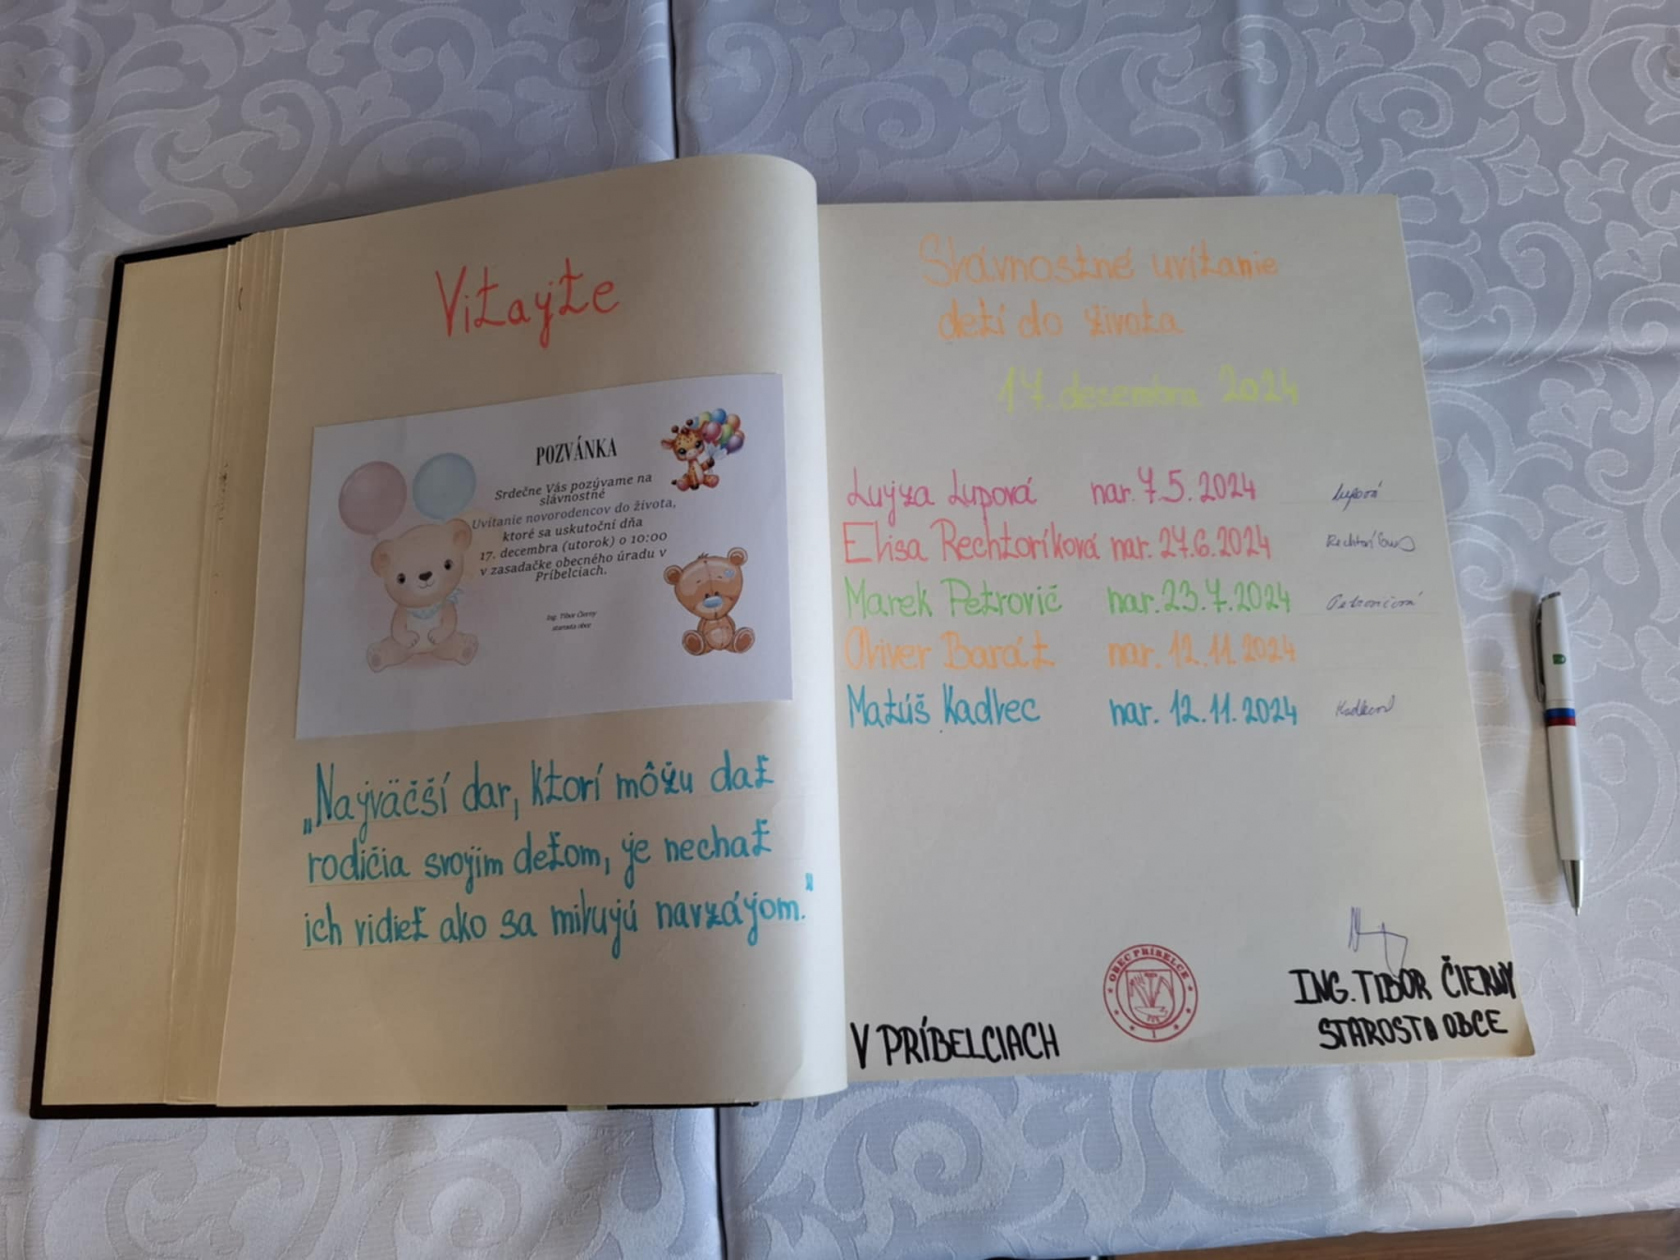 Vitajte
POZVÁNKA
Srdečne Vás pozývame na
slávnostné
Uvítanie novorodencov do života,
ktoré sa uskutoční dňa
17. decembra (utorok) o 10:00
v zasadačke obecného úradu v
Príbelciach.
Ing. Tibor Čierny
starosta obce
„Najväčší dar, ktorí môžu dať
rodičia svojim deťom, je nechať
ich vidieť ako sa milujú navzájom."
Slávnostné uvítanie
detí do života
17. decembra 2024
Lujza Lupová nar. 7.5. 2024 Lupová
Elisa Rechtoríková nar. 27.6.2024
Marek Petrovič nar. 23.7.2024 Petrovičová
Oliver Barát nar. 12.11.2024
Matúš Kadlec nar. 12.11.2024
OBEC PRÍBELCE
V PRÍBELCIACH
ING. TIBOR ČIERNY
STAROSTA OBCE